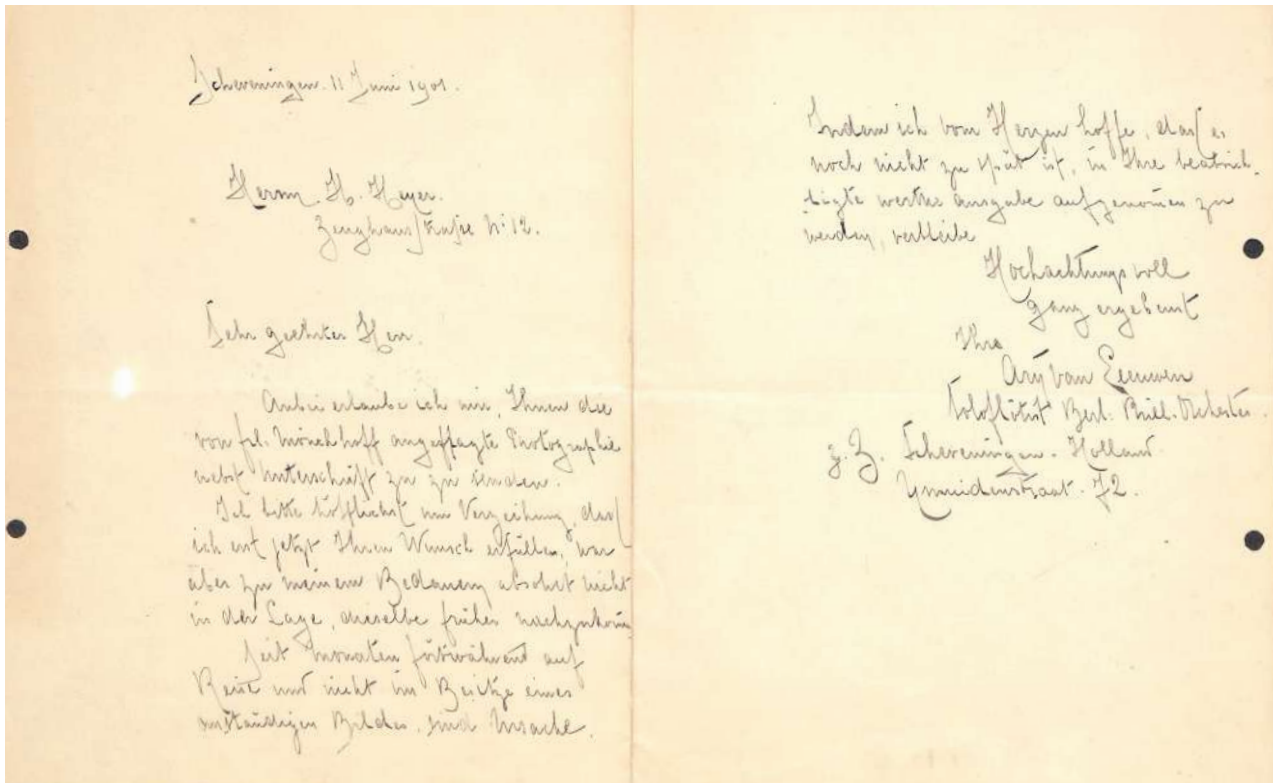 Scheveningen. 11 Juni 1901.
Herrn. H. Meyer.
Zeughausstrasse No 12.
Sehr geehrter Herr.
Anbei erlaube ich mir, Ihnen die
von frl. Mönchhoff angefragte Photographie
nebst Unterschrift zu zu senden.
Ich bitte höfflichst um Verzeihung, dass
ich erst jetzt Ihren Wunsch erfülle, war
aber zu meinem Bedauern absolut nicht
in der Lage, dieselbe früher
Seit Monaten fortwährend auf
Reise und nicht im Besitze eines
anständigen Bildes, sind Ursache.
Indem ich vom Herzen hoffe, dass es
noch nicht zu spät ist, in Ihre beabsich-
tigte werthe Ausgabe aufgenomen zu
werden, verbleibe
Hochachtungsvoll
ganz ergebenst
Ihre
Ary van Leeuwen
Soloflötist Berl. Phill. Orchester.
z. Z. Scheveningen - Holland.
Ymuidenstraat. 72.